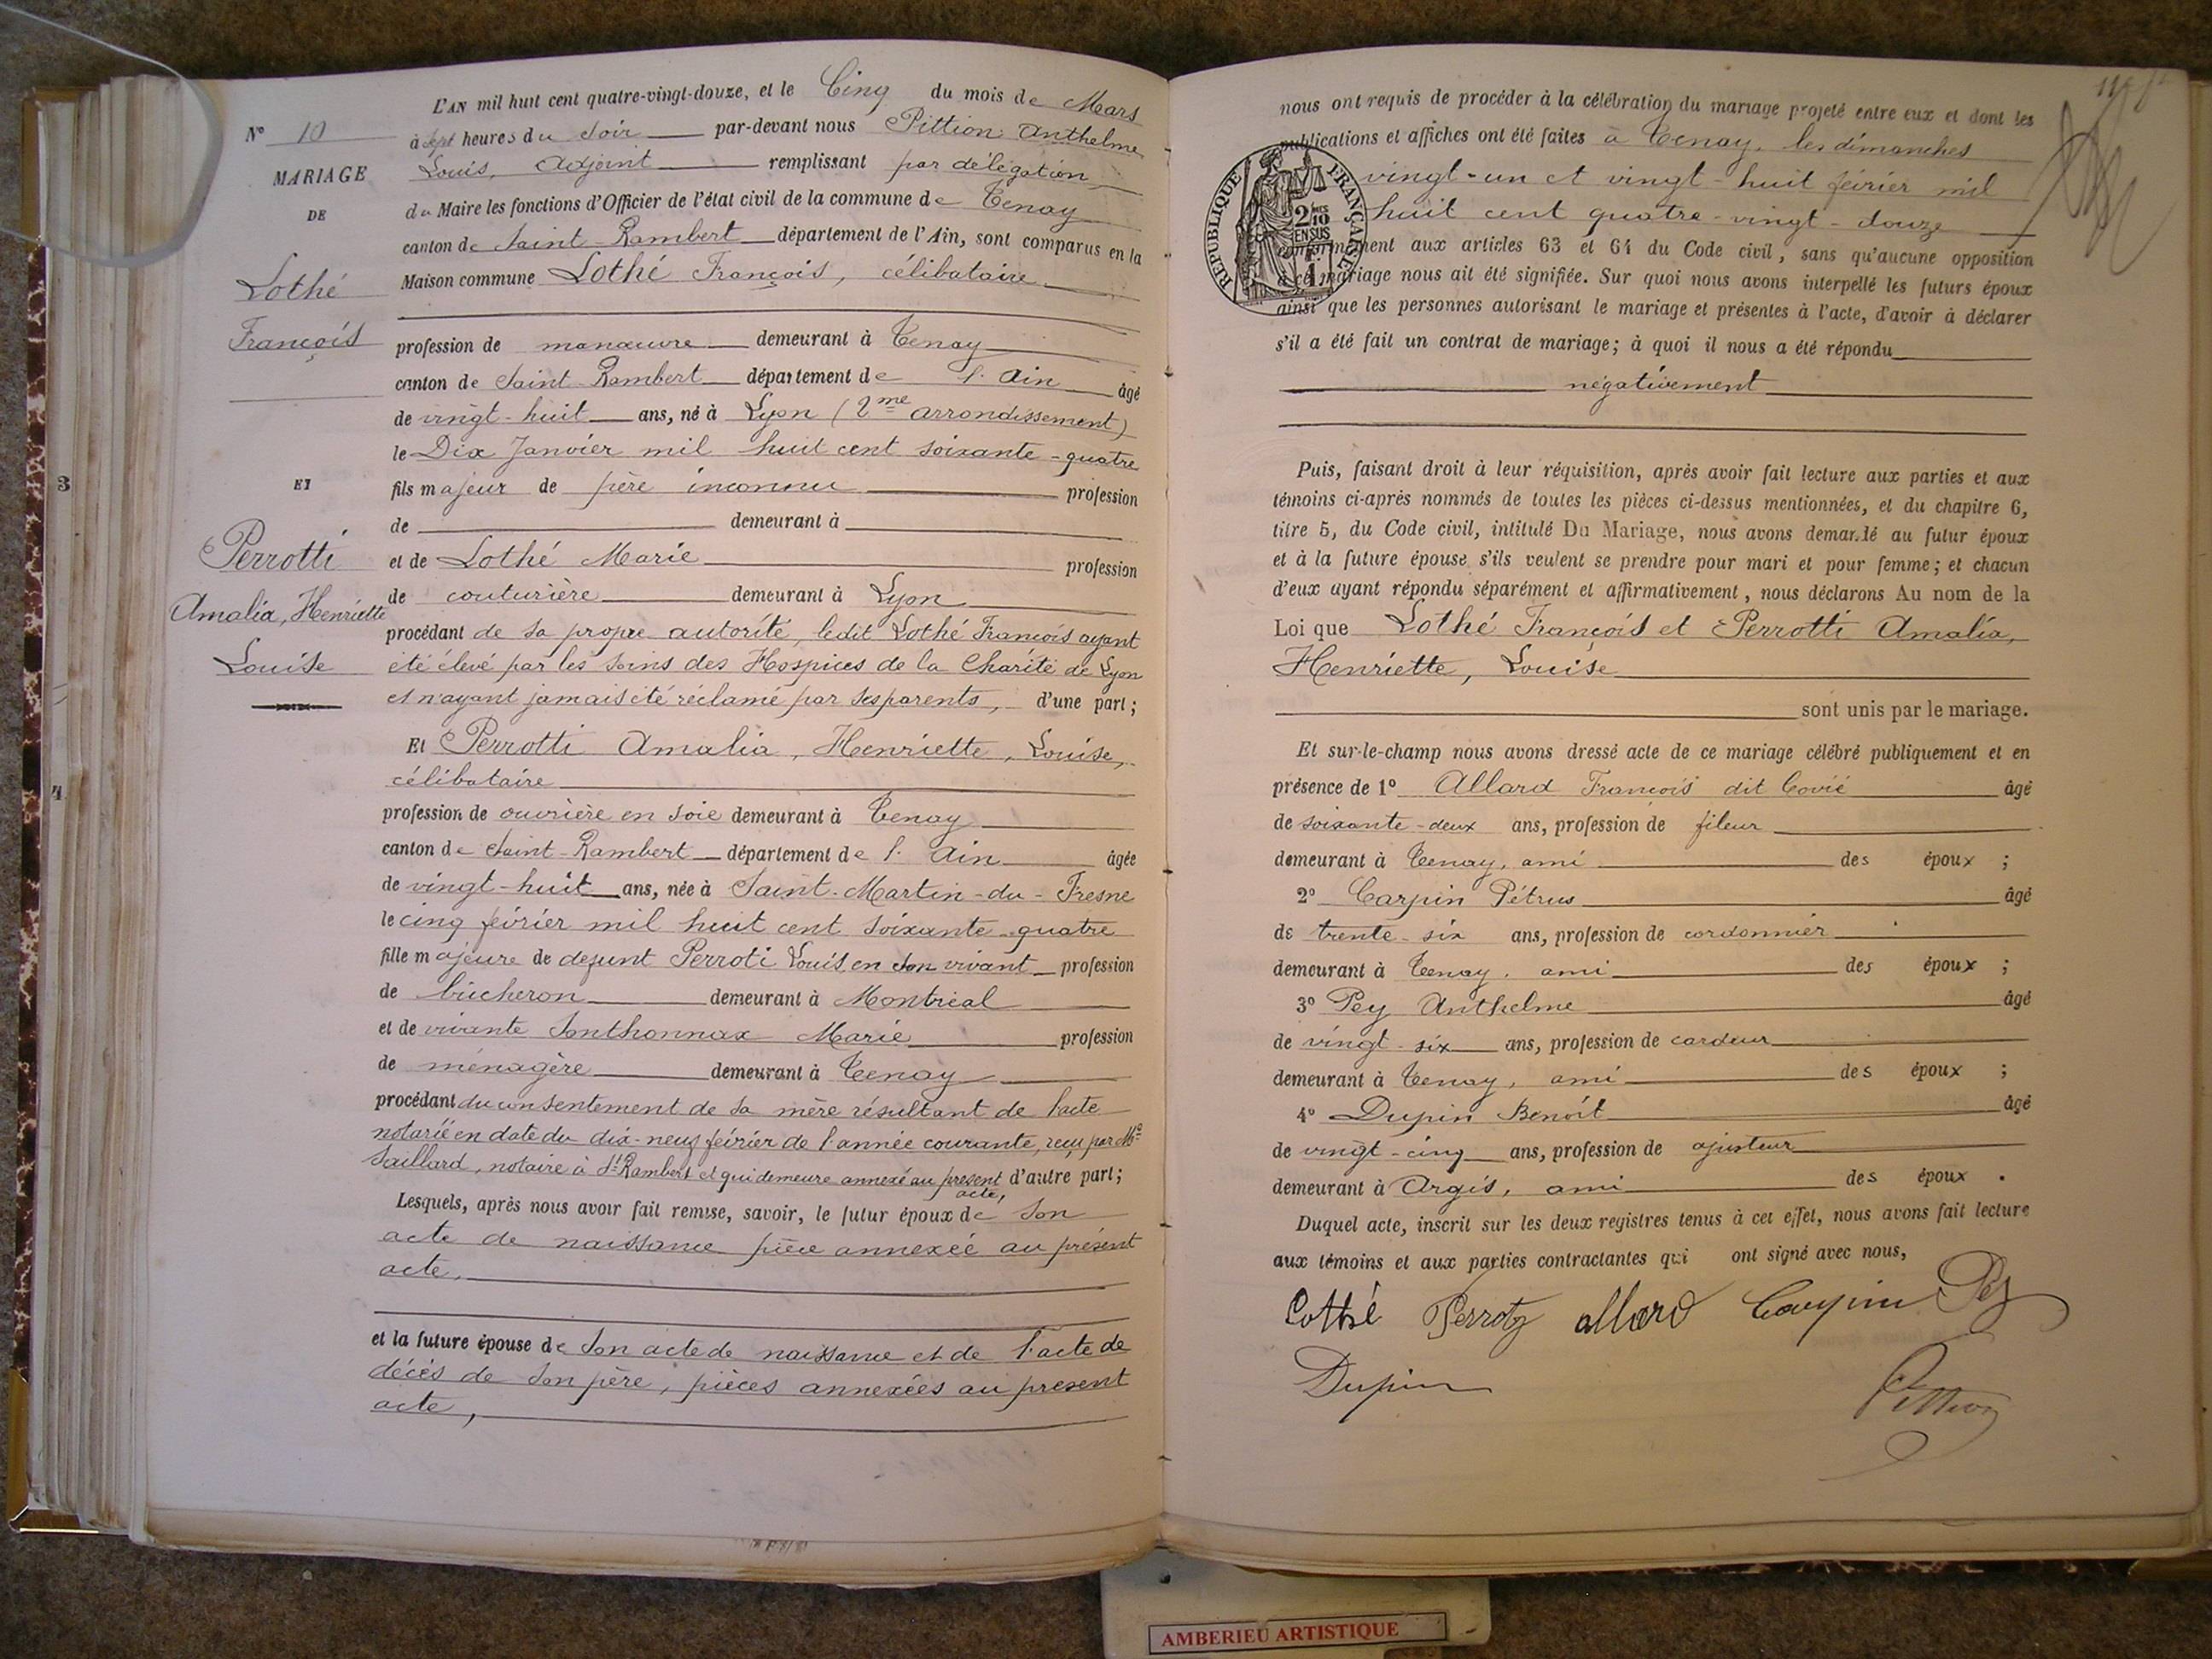 N° 10
MARIAGE
DE
Lothé
François
ET
Perrotti
Amalia, Henriette
Louise
3
4
L'AN mil huit cent quatre-vingt-douze, et le Cinq du mois de Mars
à sept heures du soir par-devant nous Pittion Anthelme
Louis, Adjoint remplissant par délégation
du Maire les fonctions d'Officier de l'état civil de la commune de Tenay
canton de Saint-Rambert département de l'Ain, sont comparus en la
Maison commune Lothé François, célibataire
profession de manœuvre demeurant à Tenay
canton de Saint-Rambert département de l'Ain âgé
de vingt-huit ans, né à Lyon (2me arrondissement)
le Dix Janvier mil huit cent soixante-quatre
fils majeur de père inconnu profession
de demeurant à
et de Lothé Marie profession
de couturière demeurant à Lyon
procédant de sa propre autorité, ledit Lothé François ayant
été élevé par les soins des Hospices de la Charité de Lyon
et n'ayant jamais été réclamé par ses parents, d'une part;
Et Perrotti Amalia, Henriette, Louise,
célibataire
profession de ouvrière en soie demeurant à Tenay
canton de Saint-Rambert département de l'Ain âgée
de vingt-huit ans, née à Saint-Martin-du-Fresne
le cinq février mil huit cent soixante-quatre
fille majeure de defunt Perroti Louis, en son vivant profession
de bûcheron demeurant à Montréal
et de vivante Sonthonnax Marie profession
de ménagère demeurant à Tenay
procédant du consentement de sa mère résultant de l'acte
notarié en date du dix-neuf février de l'année courante, reçu par Me
Saillard, notaire à St Rambert et qui demeure annexé au présent acte, d'autre part;
Lesquels, après nous avoir fait remise, savoir, le futur époux de son
acte de naissance pièce annexée au présent
acte,
et la future épouse de son acte de naissance et de l'acte de
décès de son père, pièces annexées au présent
acte,
nous ont requis de procéder à la célébration du mariage projeté entre eux et dont les
publications et affiches ont été faites à Tenay, les dimanches
vingt-un et vingt-huit février mil
huit cent quatre-vingt-douze
conformément aux articles 63 et 64 du Code civil, sans qu'aucune opposition
à ce mariage nous ait été signifiée. Sur quoi nous avons interpellé les futurs époux
ainsi que les personnes autorisant le mariage et présentes à l'acte, d'avoir à déclarer
s'il a été fait un contrat de mariage; à quoi il nous a été répondu
négativement
REPUBLIQUE FRANÇAISE
2/10
EN SUS
Puis, faisant droit à leur réquisition, après avoir fait lecture aux parties et aux
témoins ci-après nommés de toutes les pièces ci-dessus mentionnées, et du chapitre 6,
titre 5, du Code civil, intitulé Du Mariage, nous avons demandé au futur époux
et à la future épouse s'ils veulent se prendre pour mari et pour femme; et chacun
d'eux ayant répondu séparément et affirmativement, nous déclarons Au nom de la
Loi que Lothé François et Perrotti Amalia,
Henriette, Louise
sont unis par le mariage.
Et sur-le-champ nous avons dressé acte de ce mariage célébré publiquement et en
présence de 1° Allard François dit âgé
de soixante-deux ans, profession de fileur
demeurant à Tenay, ami des époux ;
2° Carpin Pétrus âgé
de trente-six ans, profession de cordonnier
demeurant à Tenay, ami des époux ;
3° Pey Anthelme âgé
de vingt-six ans, profession de cardeur
demeurant à Tenay, ami des époux ;
4° Dupin Benoît âgé
de vingt-cinq ans, profession de ajusteur
demeurant à Argis, ami des époux .
Duquel acte, inscrit sur les deux registres tenus à cet effet, nous avons fait lecture
aux témoins et aux parties contractantes qui ont signé avec nous,
Lothé Perroty allard Carpin Pey
Dupin Pittion
AMBERIEU ARTISTIQUE